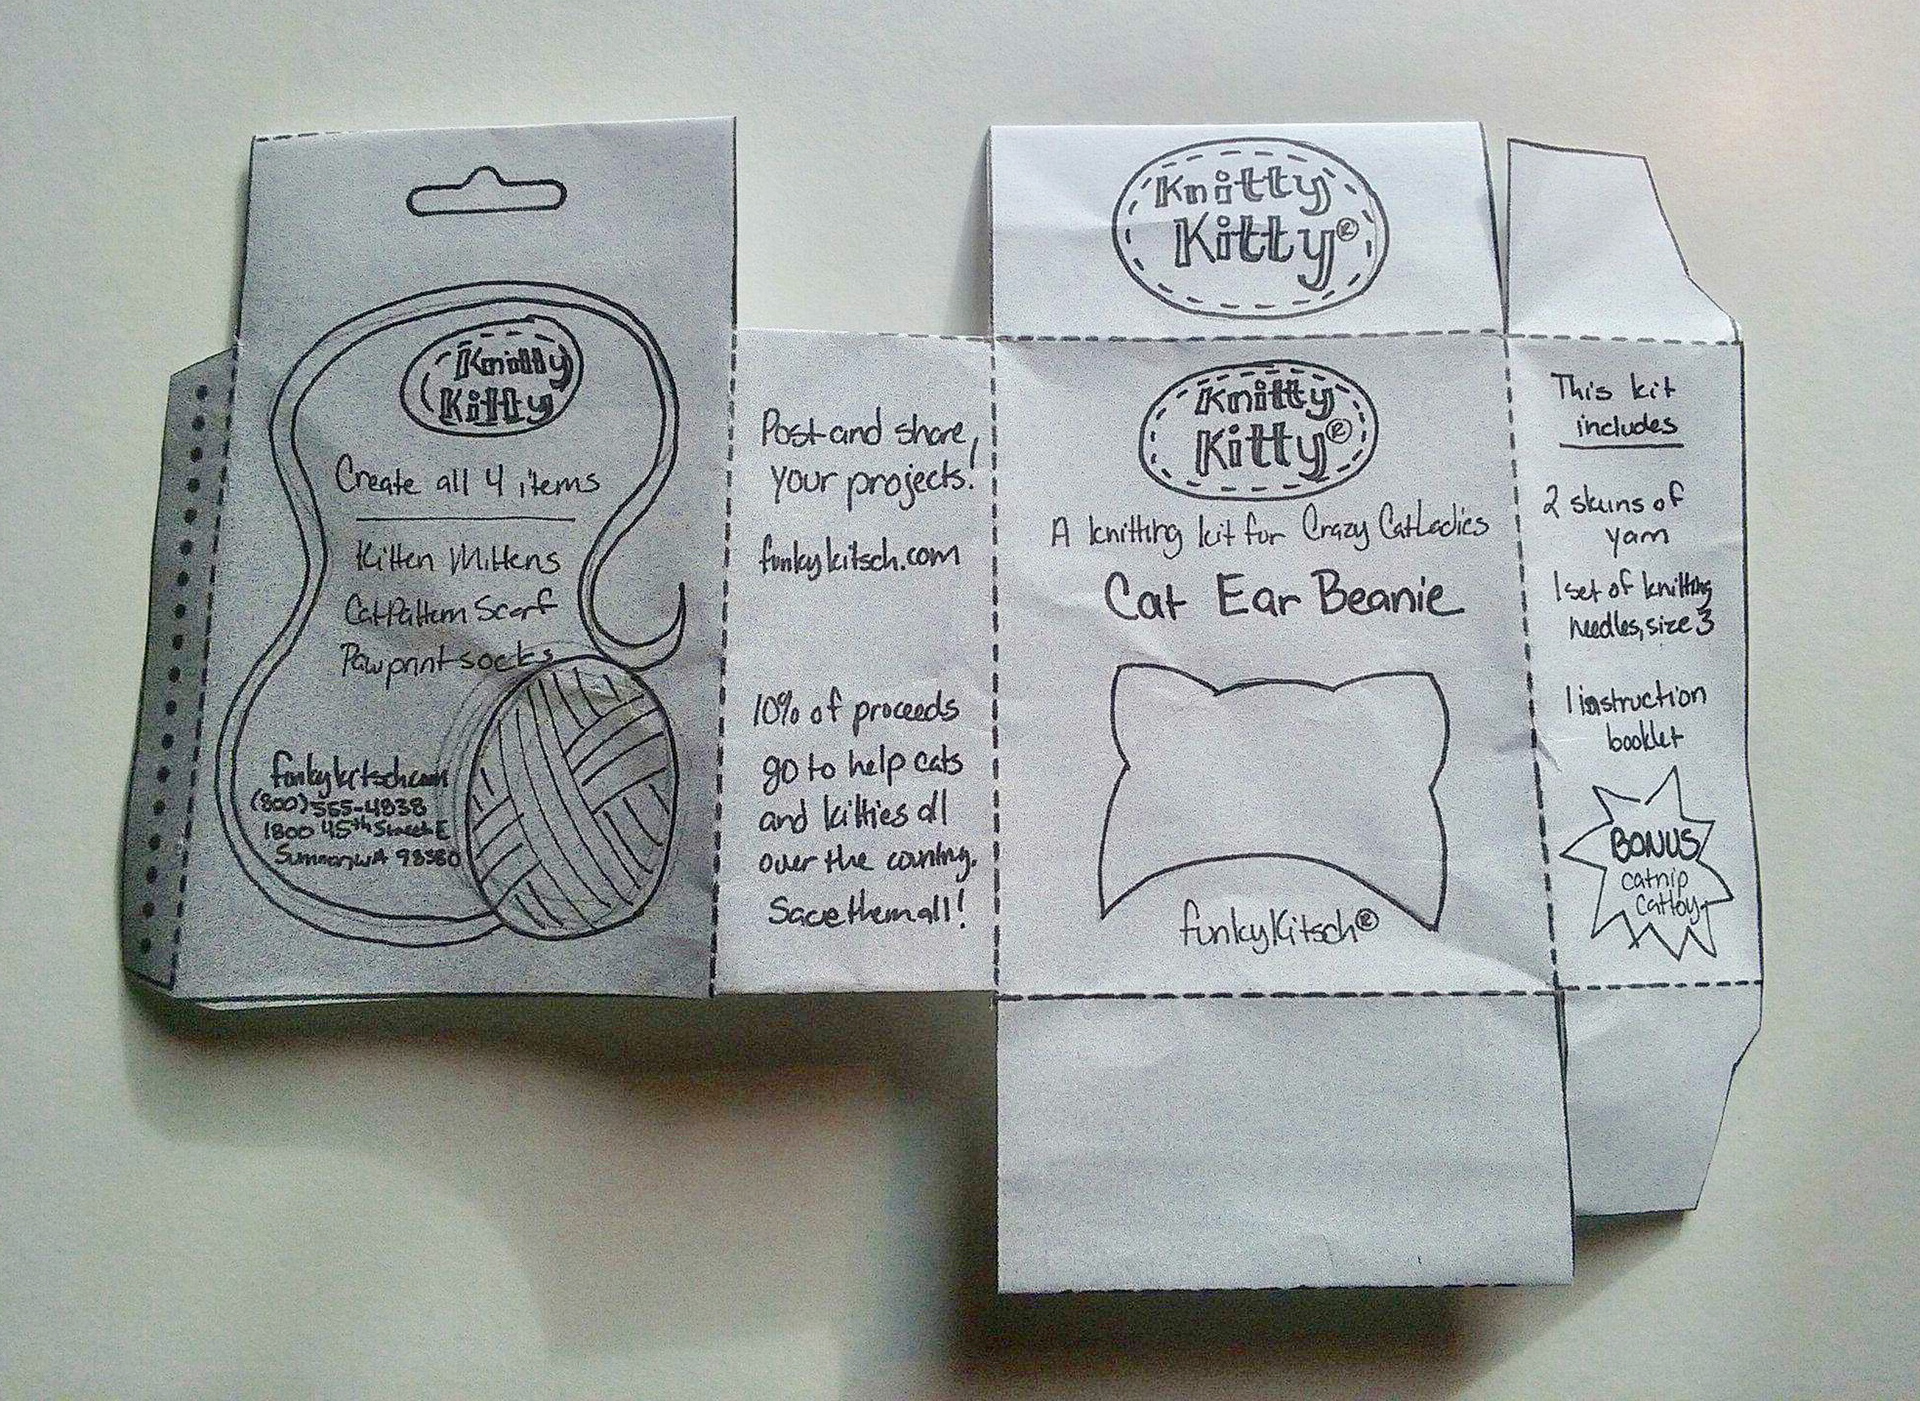 Knitty
Kitty
Create all 4 items
Kitten Mittens
Cat Pattern Scarf
Pawprint socks
funkykitsch.com
(800) 555-4838
1800 45th Street E
WA 98380
Post and share,
your projects!
funkykitsch.com
10% of proceeds
go to help cats
and kitties all
over the
them all!
Knitty
Kitty®
Knitty
Kitty®
A knitting kit for Crazy Cat Ladies
Cat Ear Beanie
funkyKitsch®
This kit
includes
2 skeins of
yarn
1 set of knitting
needles, size 3
1 instruction
booklet
BONUS
catnip
cat toy